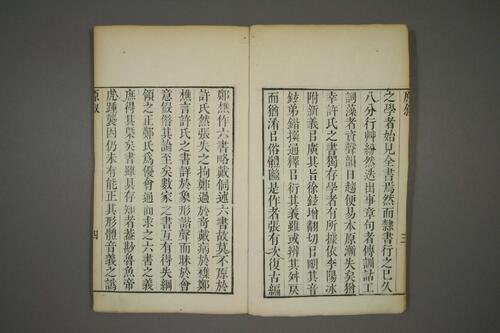 原叙
之學者始見全書焉然而隸書行之已久
八分行艸紛然迭出事章句者傳訓詁工
詞藻者資聲韻日趨便易本原漸失矣猶
幸許氏之書獨存學者有所據依李陽冰
附新義㠯廣其旨徐鉉增翻切㠯明其音
鉉弟鍇撰通釋㠯衍其義雖或辨其舛戾
而猶洧㠯俗體繇是作者張有次復古編
三
鄭樵作六書略戴侗述六書故莫不原於
許氏然張失之拘鄭過於奇戴病於穅鄭
樵言許氏之書詳於象形諧聲而昧於會
意假俗其論至矣數家之書互有得失綱
領之正鄭氏爲優會通而求之六書之義
庶得其㮚矣書雖具存知者葢尟魯魚帝
虎踵襲因仍未有能正其形體音義之譌
原叙
四